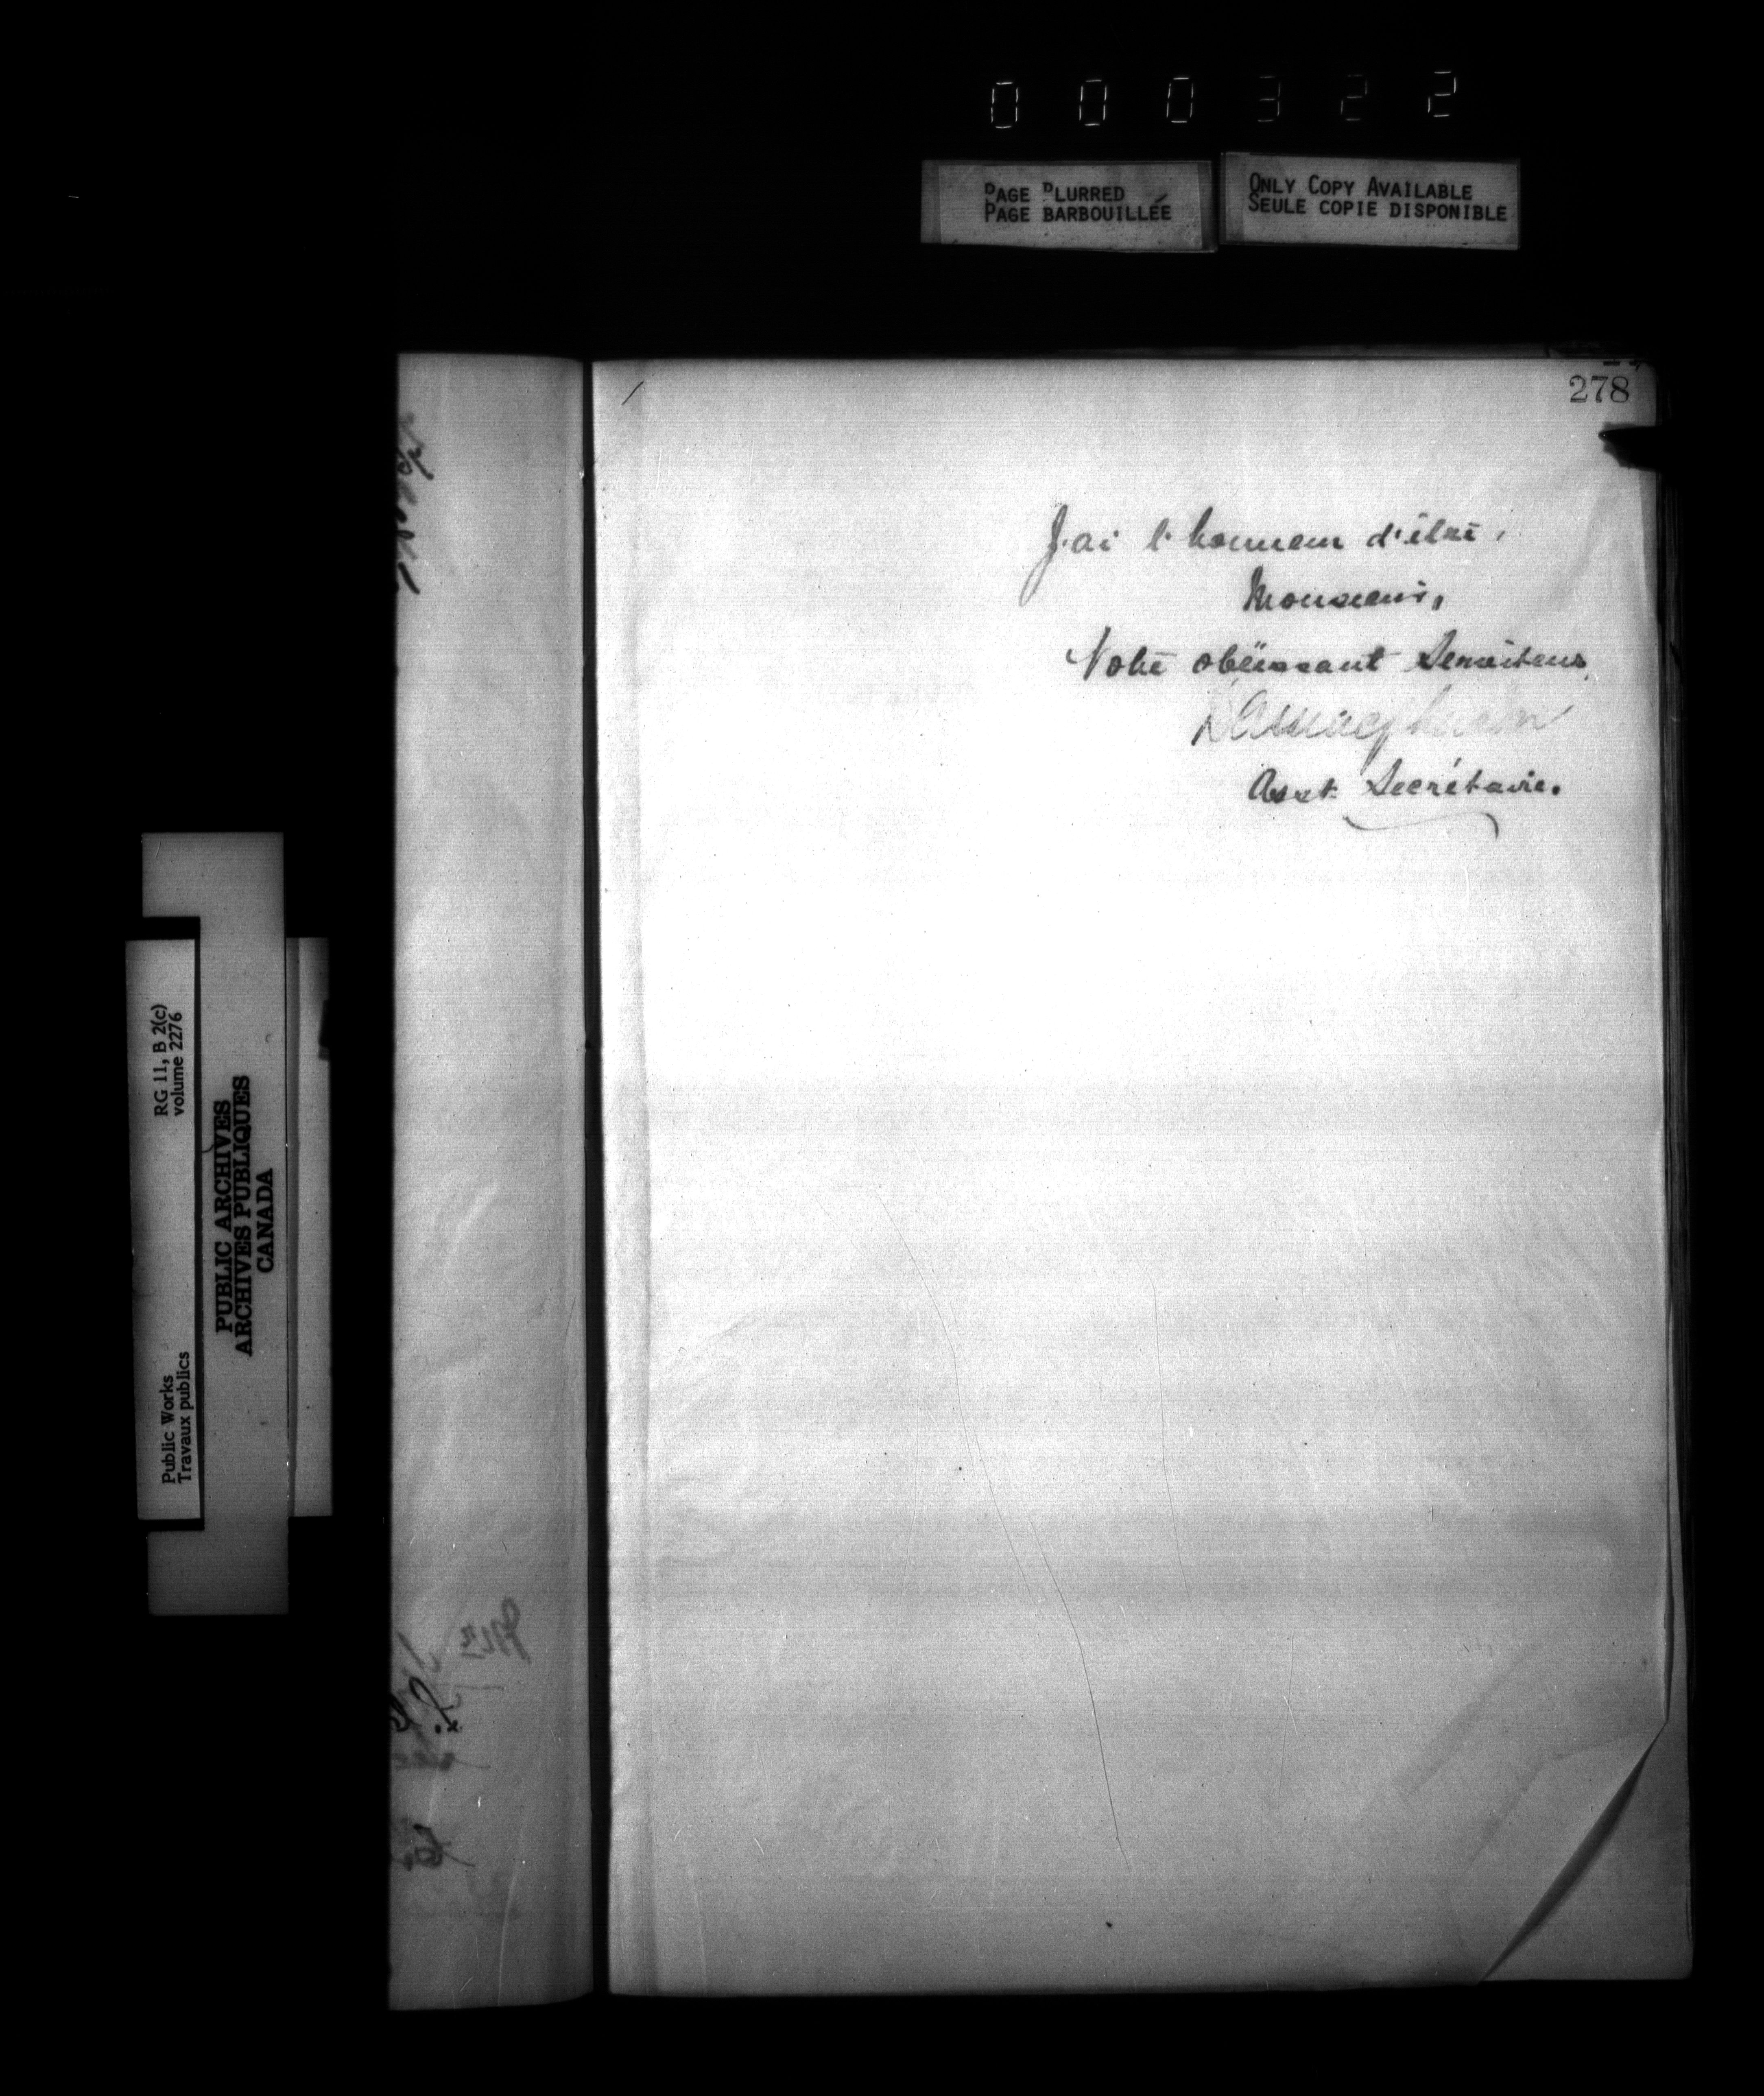 000322
PAGE BLURRED
PAGE BARBOUILLÉE
ONLY COPY AVAILABLE
SEULE COPIE DISPONIBLE
278
J'ai l'honneur d'être,
Monsieur,
Votre obéissant Serviteur,
Asst. Secrétaire.
RG 11, B 2(c)
volume 2276
Public Works
Travaux publics
PUBLIC ARCHIVES
ARCHIVES PUBLIQUES
CANADA